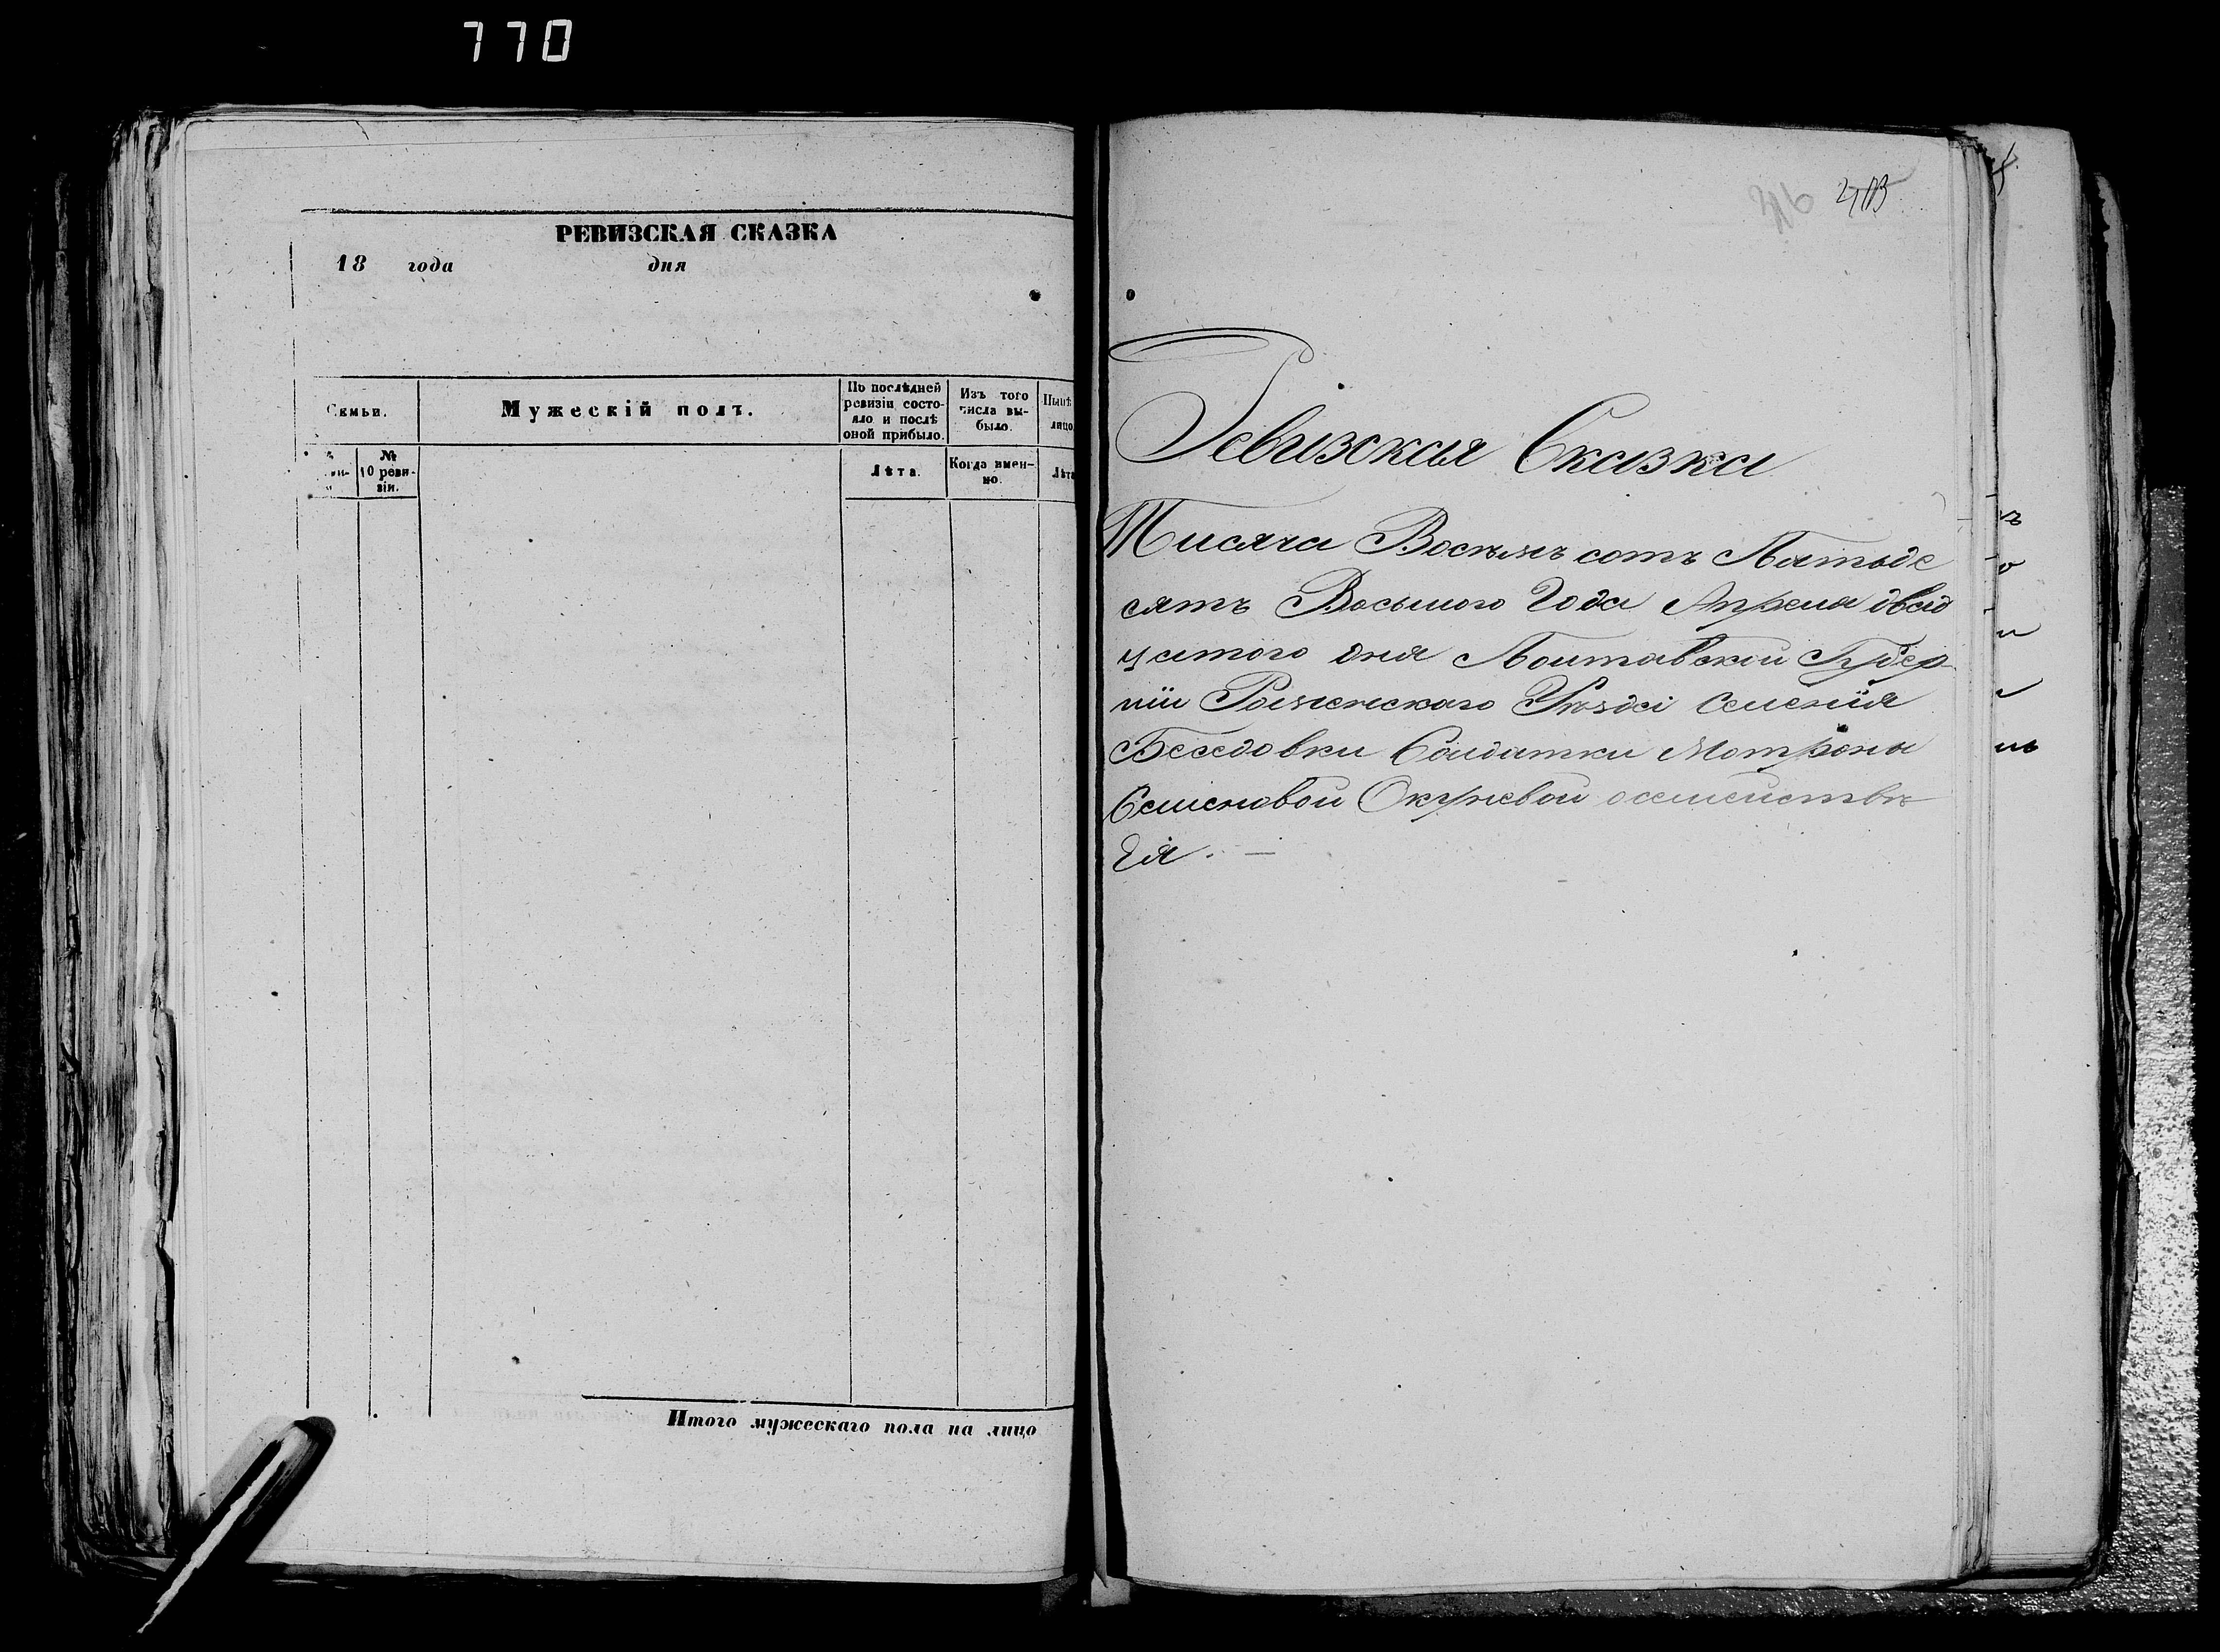 770
РЕВИЗСКАЯ СКАЗКА
18 года дня
Семьи.
Мужескій полъ.
По послѣдней ревизіи состо-
яло и послѣ оной прибыло.
Изъ того числа вы-
было.
Нынѣ
лицо
№ 10 реви-
зіи.
Лѣта.
Когда имен-
но.
Лѣта
Итого мужескаго пола на лицо
403
Ревизская Сказка
Тисяча Восѣмъ сотъ Пятьде
сятъ Восьмого Года Апреля двад
цатого дня Полтавской Губер
ніи Роменскаго Уѣзда Селенія
Беседовки Солдатки Мотроны
Семеновой Окуневой осемействѣ
Ея. —